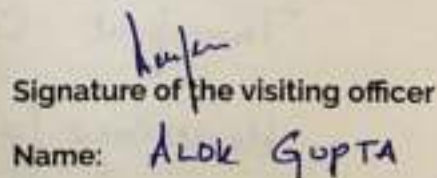 Signature of the visiting officer
Name: ALOK GUPTA